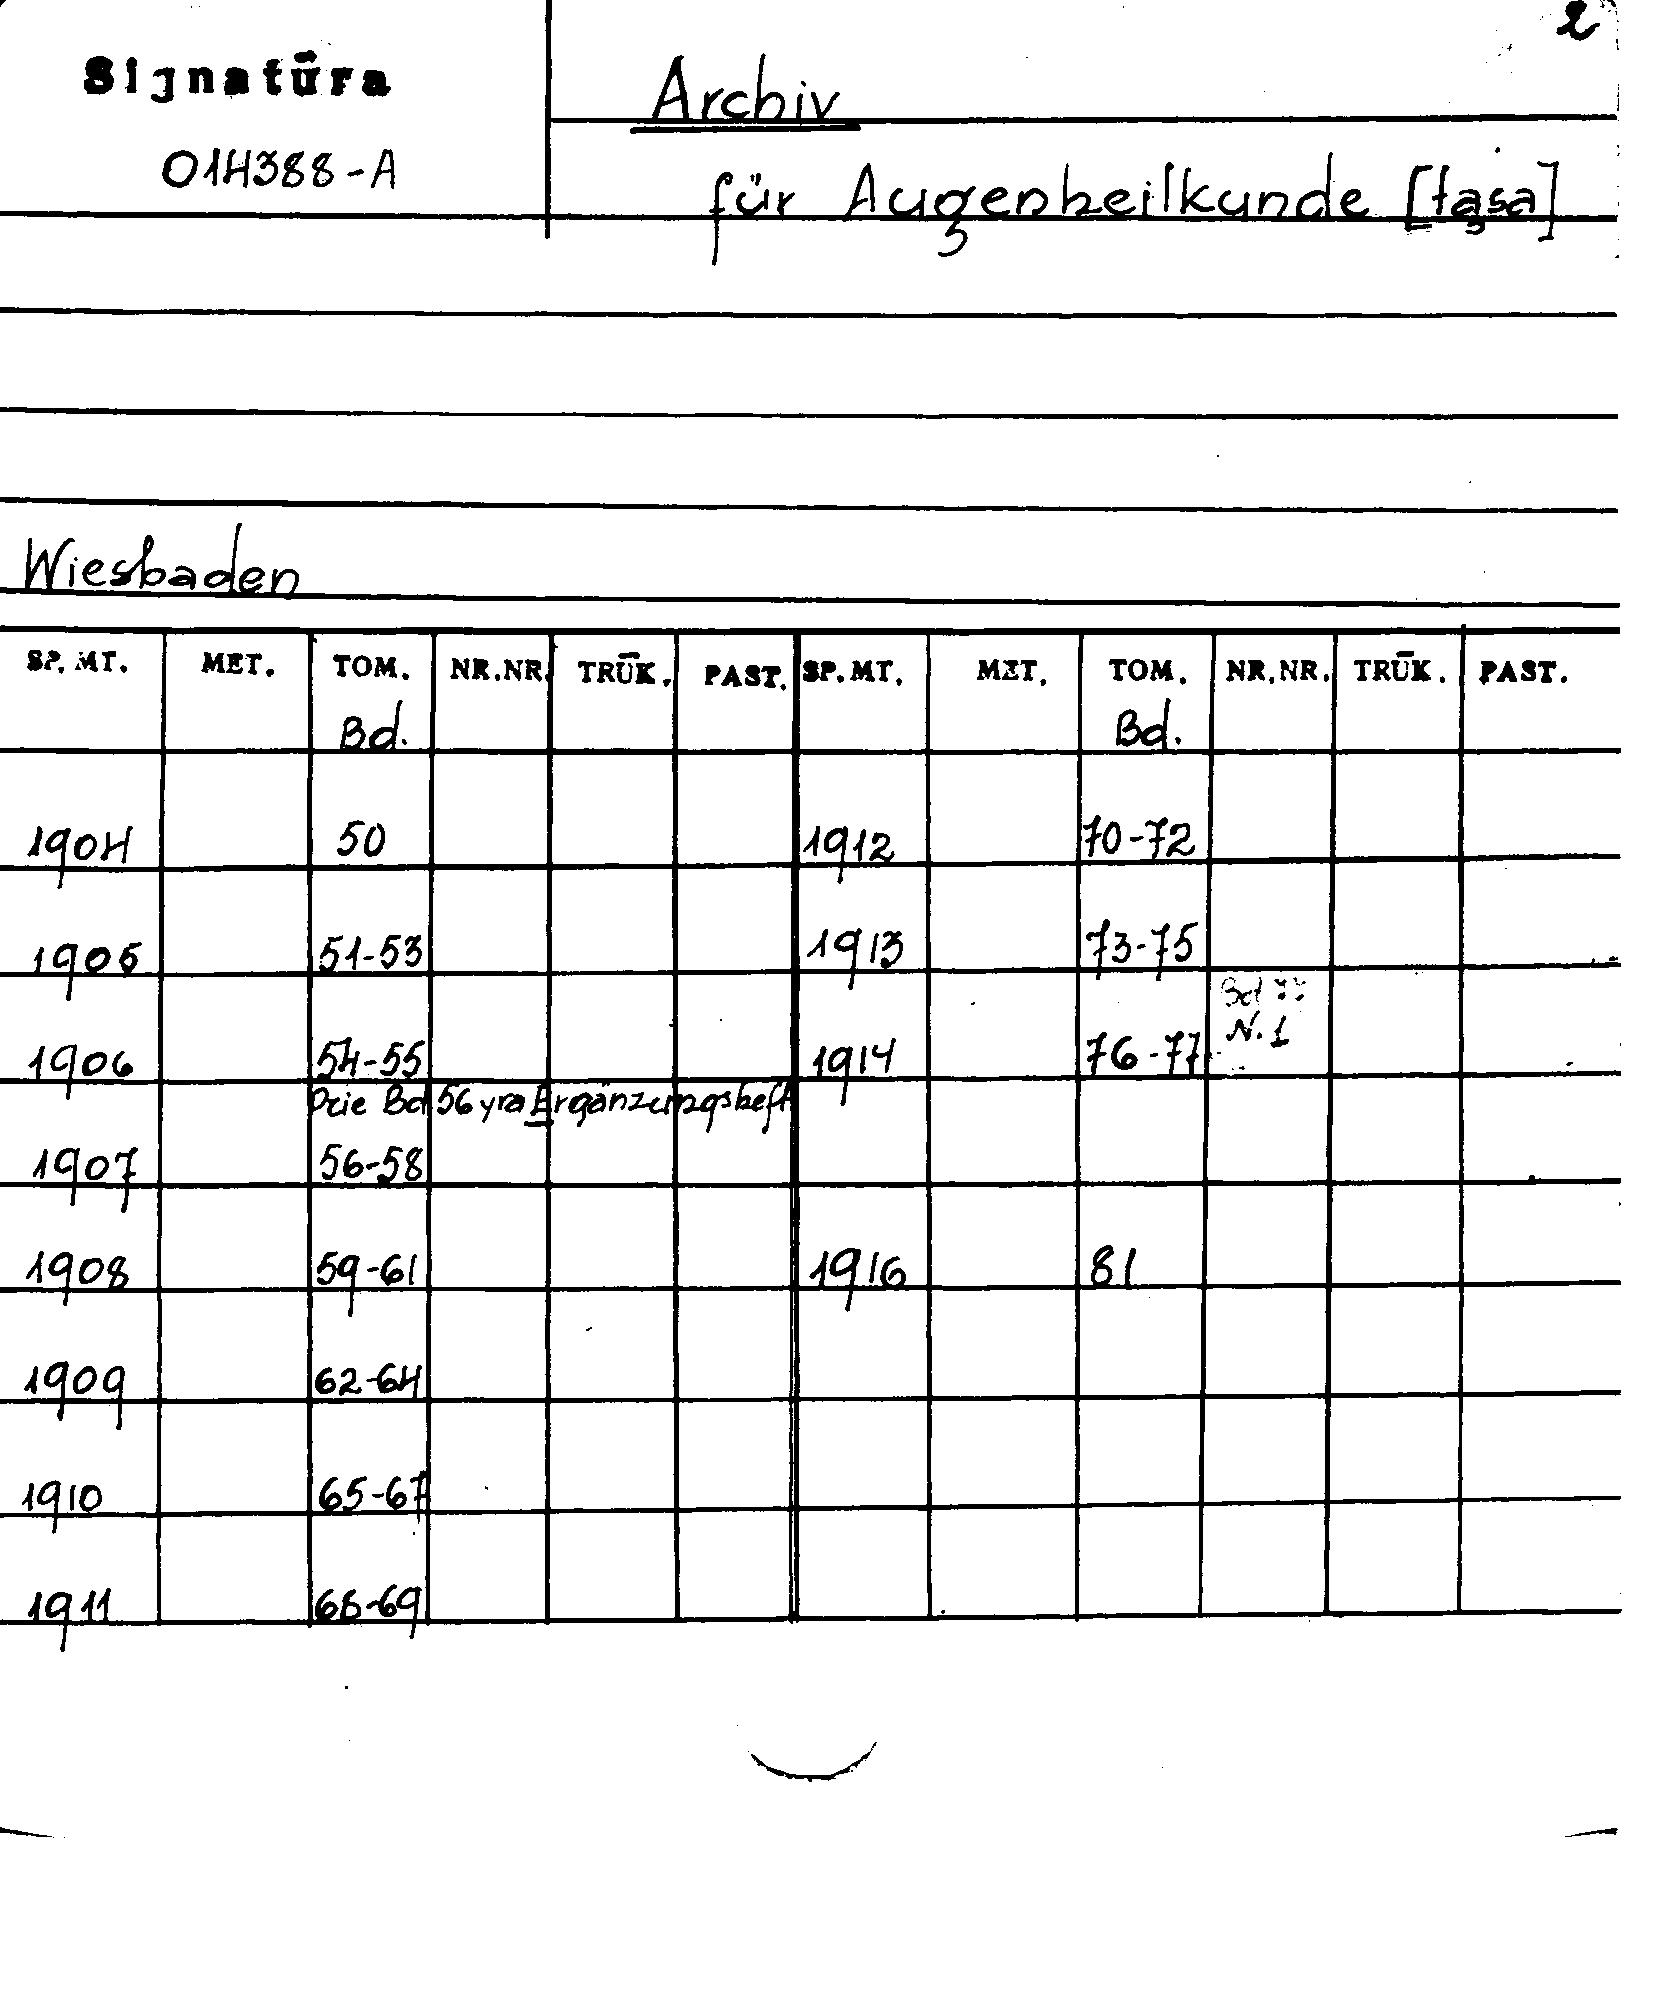 2
Signatūra
Archiv
014388-A
für Augenheilkunde [tąsa]
Wiesbaden
SP. MT. MET. TOM. NR.NR. TRŪK. PAST. SP. MT. MET. TOM. NR.NR. TRŪK. PAST.
Bd. Bd.
1904 50 1912 70-72
1905 51-53 1913 73-75
Bd 77
N. 1
1906 54-55 1914 76-77
Prie Bd 56 yra Ergänzungsheft
1907 56-58
1908 59-61 1916 81
1909 62-64
1910 65-67
1911 68-69